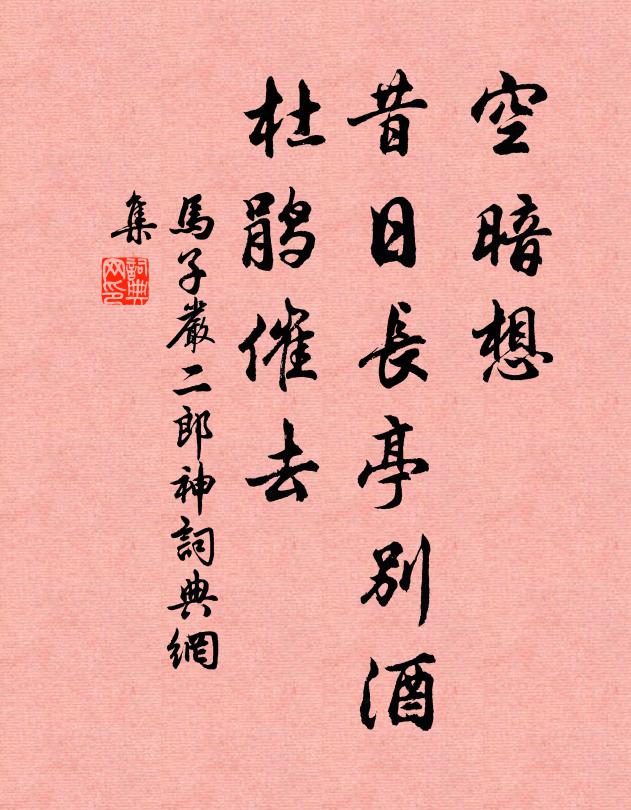 空暗想
昔日長亭別酒
杜鹃催去
馬子嚴二郎神詞典網
集
詞典
网印